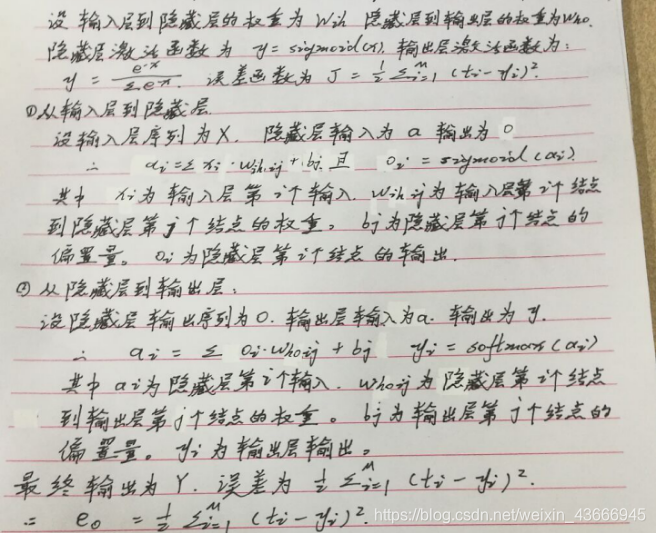 设输入层到隐藏层的权重为 Wih 隐藏层到输出层的权重为Who.
隐藏层激活函数为 y = sigmoid(x). 输出层激活函数为:
y = e^-x / Σ e^-x. 误差函数为 J = 1/2 Σ^M_i=1 (ti - yi)^2.
①从输入层到隐藏层.
设输入层序列为X. 隐藏层输入为 a 输出为 O
∴ ai = Σ xi · Wih,ij + bj 且 Oi = sigmoid(ai)
其中 xi为输入层第i个输入. Wih,ij为输入层第i个结点
到隐藏层第j个结点的权重。bj为隐藏层第j个结点的
偏置量。Oi为隐藏层第i个结点的输出.
② 从隐藏层到输出层:
设隐藏层输出序列为O. 输出层输入为a. 输出为 y.
∴ ai = Σ Oi·Who,ij + bj yi = softmax(ai)
其中 ai为隐藏层第i个输入. Who,ij为隐藏层第i个结点
到输出层第j个结点的权重。bj为输出层第j个结点的
偏置量。yi为输出层输出。
最终输出为Y. 误差为 1/2 Σ^M_i=1 (ti - yi)^2.
∴ e0 = 1/2 Σ^M_i=1 (ti - yi)^2.
https://blog.csdn.net/weixin_43666945